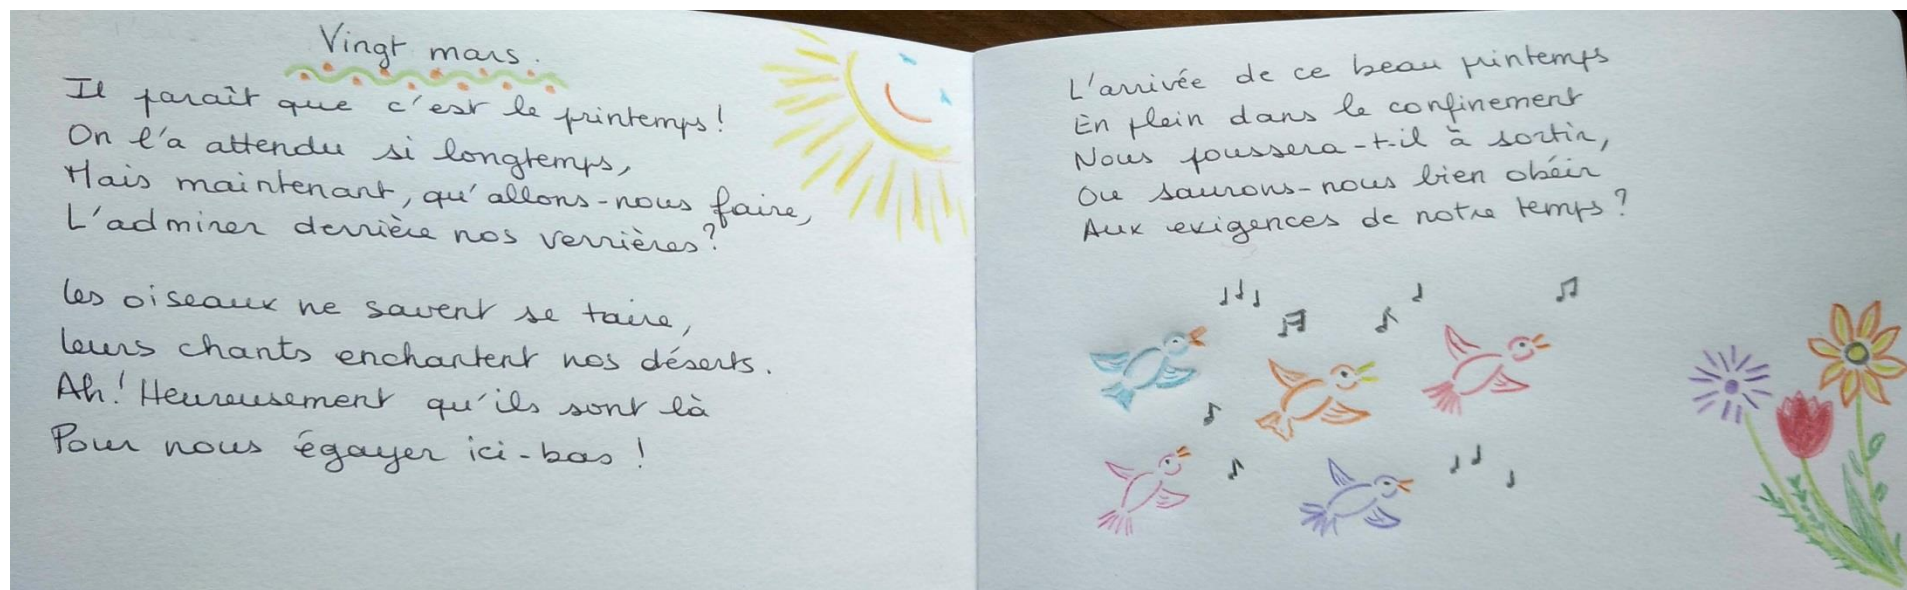 Vingt mars.
Il paraît que c'est le printemps !
On l'a attendu si longtemps,
Mais maintenant, qu'allons-nous faire,
L'admirer derrière nos verrières ?
Les oiseaux ne savent se taire,
Leurs chants enchantent nos déserts.
Ah ! Heureusement qu'ils sont là
Pour nous égayer ici-bas !
L'arrivée de ce beau printemps
En plein dans le confinement
Nous poussera-t-il à sortir,
Ou saurons-nous bien obéir
Aux exigences de notre temps ?